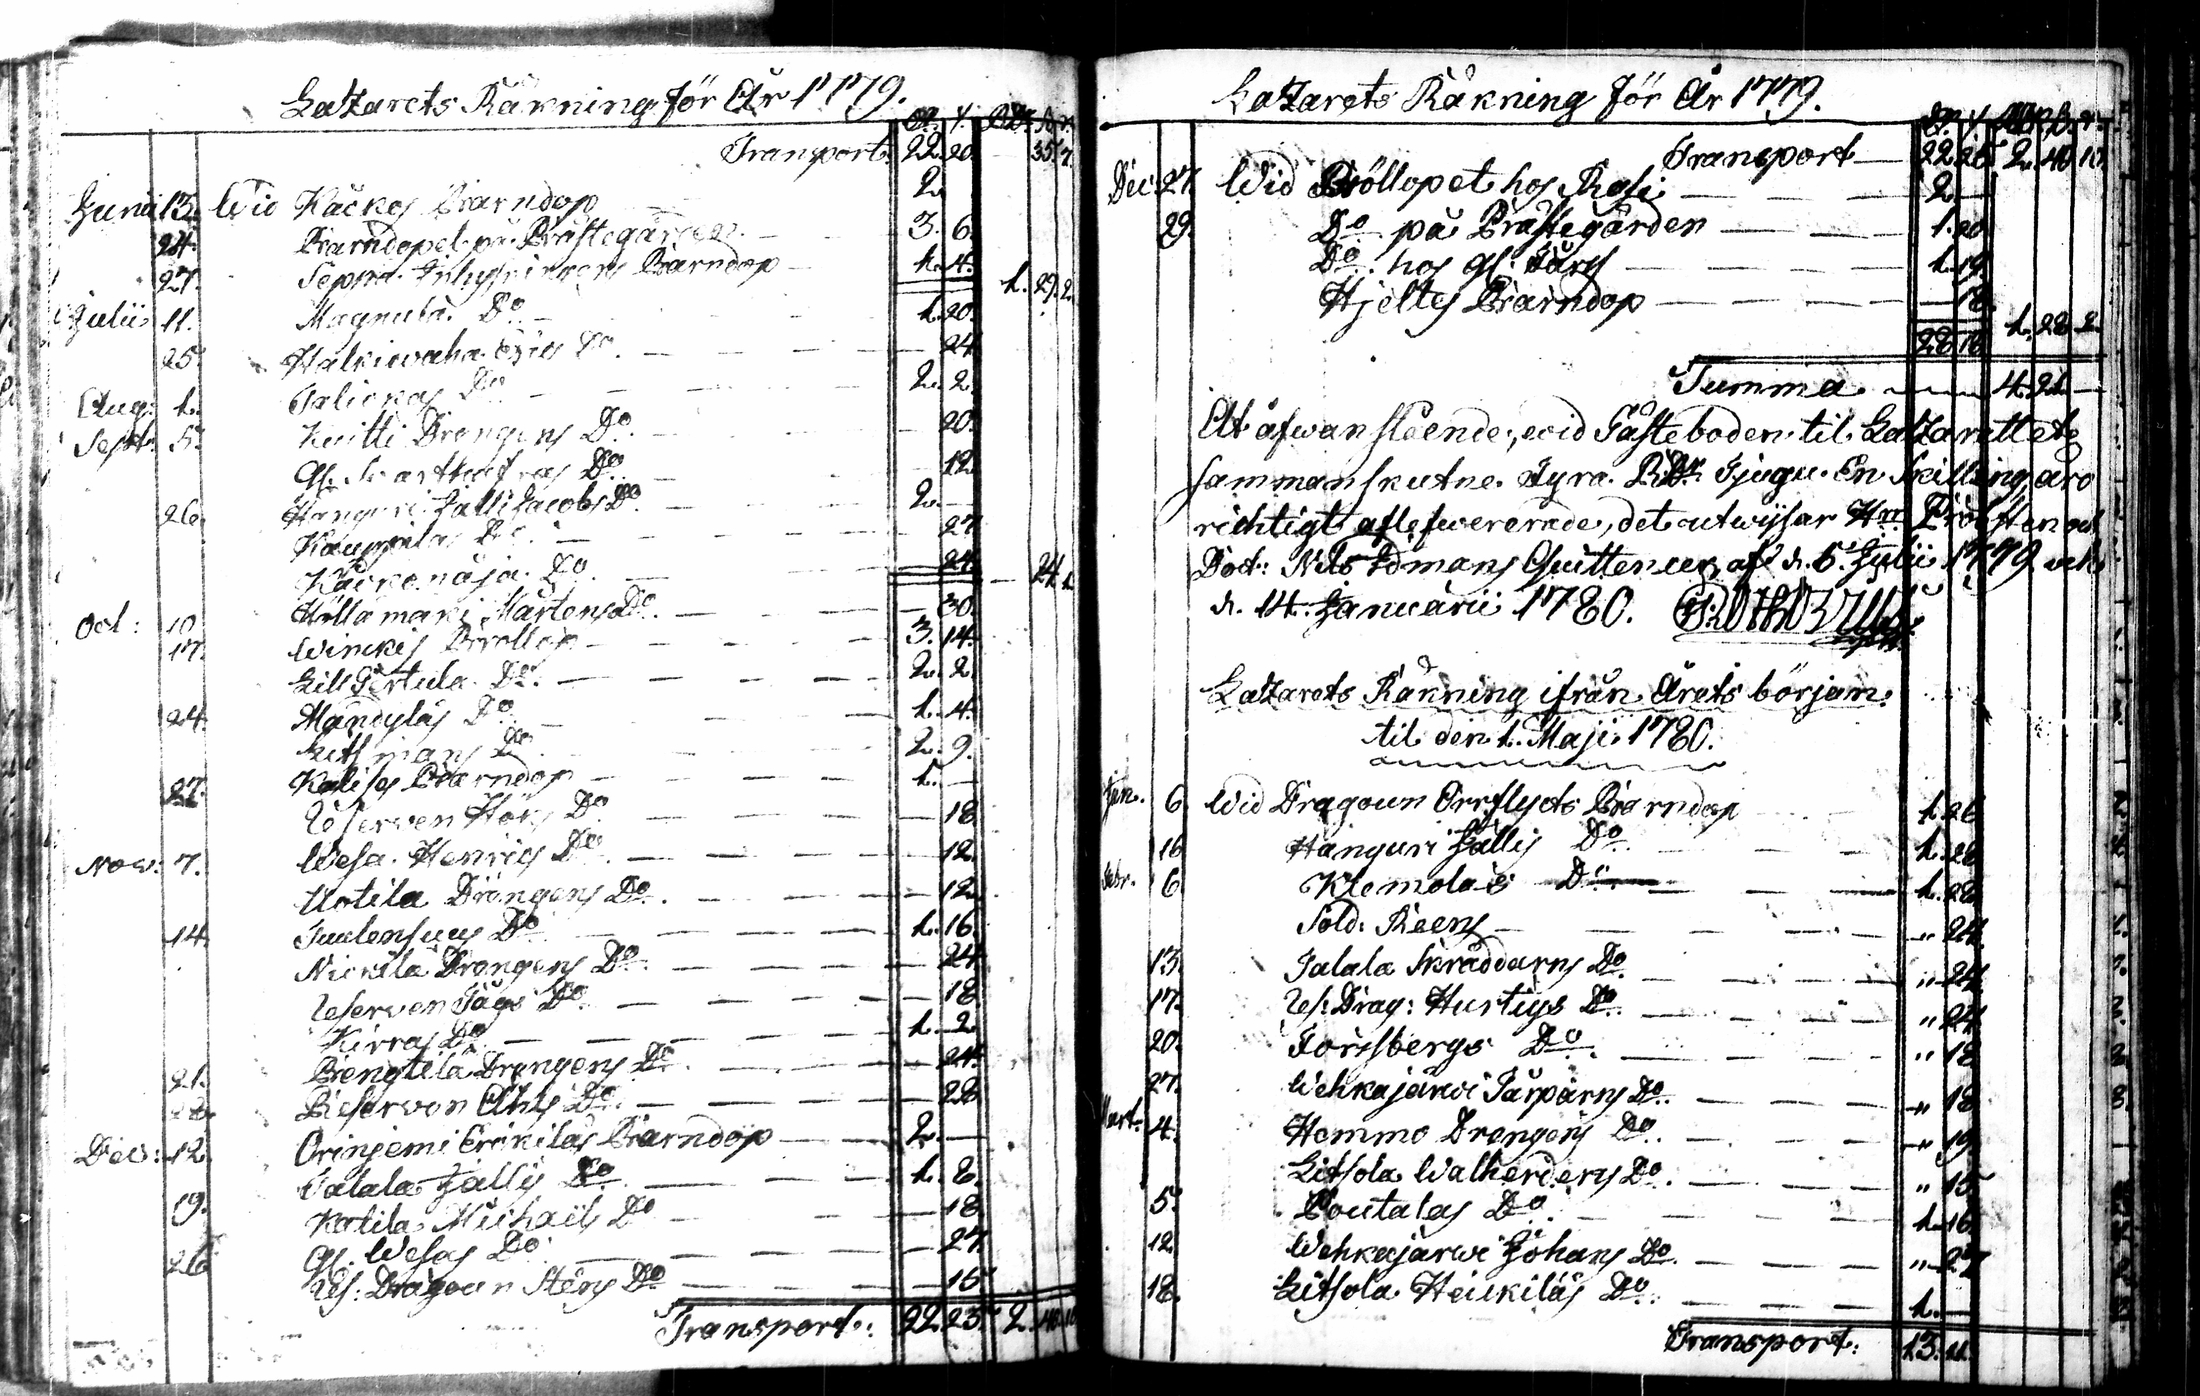 Latzarets Räkning för År 1779.
Transport. 22. 20. 35. 7.
Junii 13. Wid Käckes Barndop 2.
24. Barndopet på Prästegården 3. 6.
27. Barndop 1. 4. 1. 29. 2.
Julii 11. Magnula Do 1. 20.
25. Do. 24.
Aug: 1. Do 2. 2.
Sept: 5. Kuitti Drengens Do. 20.
Gl. Do 12.
26. Hanguri Jalli Jacobs Do. 2.
Kauppilas Do 27
Do. 24. 24. 1.
Oct: 10 Mårtens Do. 30.
17. Winckis Bröllop 3. 14.
Lill Pertula Do. 2. 2
24. Mändyläs Do 1. 4.
Do. 2. 9.
27. Barndop 1.
Reserven Höks Do 18
Now: 7. Wesa Henrics Do 12.
Uotila Drängens Do. 12.
14. Do 1. 16.
Nickilä Drengens Do. 24
Reserven Do 18
Kirras Do 1. 2
21. Bengtilä Drengens Do 24.
28. Reserven Åhls Do. 28
Dec: 12. Orinjemi Erikiläs Barndop 2.
Talala Jallis Do 1. 8.
19. Kotila Michaels Do 18
26 Gl. Wesas Do. 27.
Res: Dragoun Stens Do 15
Transport: 22. 23. 2. 40. 10
Latzarets Räkning för År 1779.
Transport 22 23 2. 40. 10.
Dec: 27. Wid Bröllopet hos Rasi 2
29. Do på Prästegården 1. 20
Do. hos gl. 1. 19.
Hjeltes Barndop 18.
1. 28. 2.
28 18
Summa 4. 21.
At ofwanstående, wid Gästeboden til Latzarettet
sammanskutne Fyra R:Dr Tjugu En Skilling äro
richtigt aflefwererade, det utwisar Hr Probsten och
Doct: Nils Idmans Quittencer af d. 6. Julii 1779 och
d. 14. Januarii 1780.
Latzarets Räkning ifrån Årets början
til den 1. Maji 1780.
Jan. 6 Wid Dragoun Orrflychts Barndop 1. 26
16 Hanguri Jallis Do 1. 28
Febr. 6 Klemolas Do 1. 28
Sold: Reens „ 24.
13. Talala Skräddarns Do. „ 24.
17. Res: Drag: Hurtigs Do. „ 24
20. Forssbergs Do. „ 18
27. Wehkajärwi Do. „ 18
Mart. 4. Hemmo Drengens Do. „ 19
Litsola Do. „ 15
5. Poutalas Do 1. 16.
12 Wehkajärwi Johans Do. „ 27
18. Litsola Heickiläs Do. 1.
Transport: 13. 11.